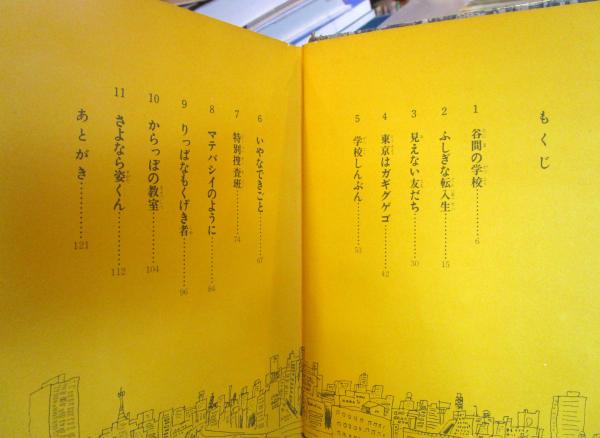 もくじ
1 谷間の学校…………6
2 ふしぎな転入生…………15
3 見えない友だち…………30
4 東京はガギグゲゴ…………42
5 学校しんぶん…………53
6 いやなできごと…………67
7 特別捜査班…………74
8 マテバシイのように…………86
9 りっぱなもくげき者…………96
10 からっぽの教室…………104
11 さよなら姿くん…………112
あとがき…………121